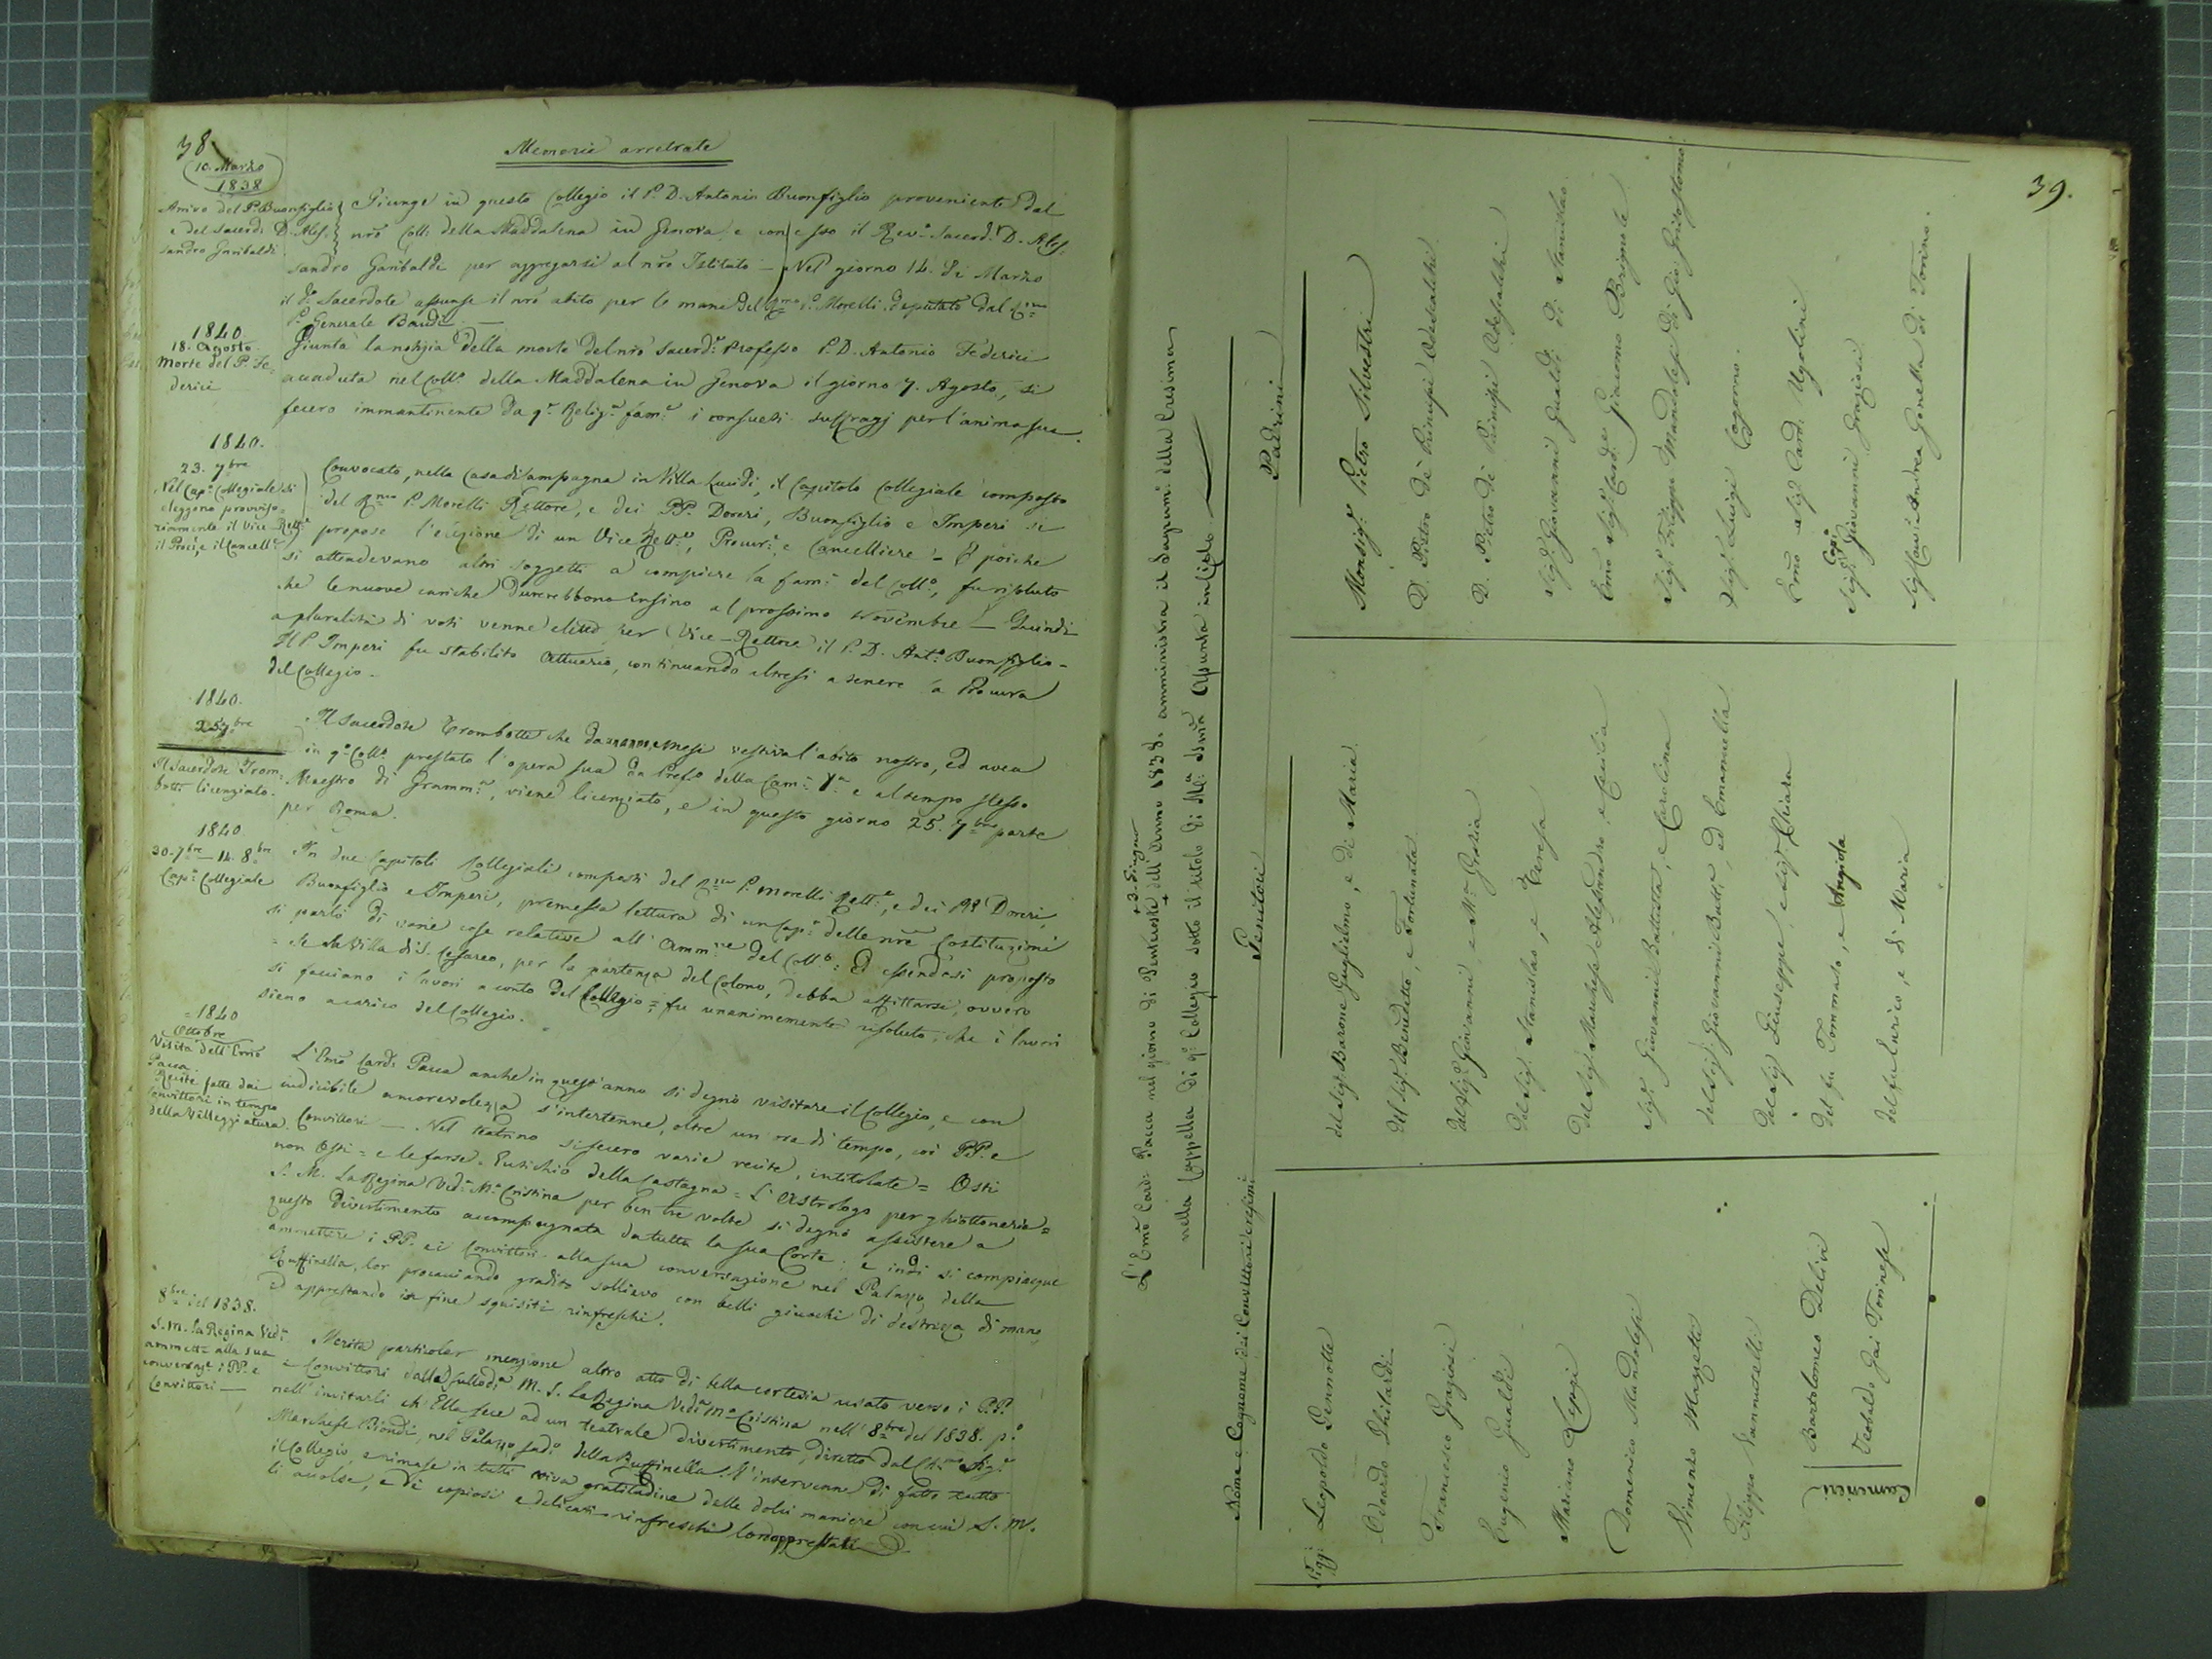 38
Memorie arretrate
10. Marzo
1838
Arrivo del P. Buonfiglio
e del Sacerd. D. Ales=
sandro Garibaldi.
Giunge in questo Collegio il P. D. Antonio Buonfiglio proveniente dal
nro Coll: della Maddalena in Genova, e con esso il Rev.o Sacerd.e D. Ales=
sandro Garibaldi per aggregarsi al nro Istituto — Nel giorno 14. di Marzo
il do Sacerdote assunse il nro abito per le mani del Rmo P. Morelli deputato dal Rmo
P. Generale Baudi. —
1840
18. Agosto.
Morte del P. Fe=
derici
Giunta la notizia della morte del nro Sacerd.e Professo P. D. Antonio Federici
accaduta nel Coll.o della Maddalena in Genova il giorno 7. Agosto, si
fecero immantinente da q.a Relig.a fam.a i consueti suffragj per l'anima sua.
1840.
23. 7bre
Nel Cap.o Collegiale si
eleggono provviso=
riamente il Vice-Rett.e
il Proc.e, e il Cancell.e
Convocato, nella Casa di Campagna in Villa Lucidi, il Capitolo Collegiale composto
del Rmo P. Morelli Rettore, e dei PP. Doreri, Buonfiglio e Imperi si
propose l'elezione di un Vice Rett.e, Procur.e, e Cancelliere = E poiche
si attendevano altri soggetti a compiere la fam.a del Coll.o, fu risoluto
che le nuove cariche durerebbono insino al prossimo Novembre — Quindi
a pluralità di voti venne eletto per Vice-Rettore il P. D. Ant.o Buonfiglio =
Il P. Imperi fu stabilito Attuario, continuando altresi a tenere la Procura
del Collegio.
1840.
25. 7bre
Il Sacerdote Trom=
botti licenziato.
Il Sacerdote Trombotti che da mesi vestiva l'abito nostro, ed avea
in q.o Coll.o prestato l'opera sua da Pref.o della Cam.a e al tempo stesso
Maestro di Gramm.a, viene licenziato, e in questo giorno 25. 7bre parte
per Roma.
1840
30. 7bre — 14. 8bre
Cap.o Collegiale
In due Capitoli Collegiali composti del Rmo P. Morelli Rett.e, e dei PP. Doreri,
Buonfiglio e Imperi, premessa lettura di un Cap.o delle nre Costituzioni
si parlò di varie cose relative all'Amm.ne del Coll.o: Ed essendosi proposto
= Se la Villa di S. Cesareo, per la partenza del Colono, debba affittarsi, ovvero
si facciano i lavori a conto del Collegio = fu unanimemente risoluto, che i lavori
sieno a carico del Collegio.
1840
Ottobre
Visita dell'Emo
Pacca
Recite fatte dai
Convittori in tempo
della Villeggiatura.
L'Emo Card. Pacca anche in quest'anno si degnò visitare il Collegio, e con
indicibile amorevolezza s'intertenne, oltre un'ora di tempo, coi PP. e
Convittori — Nel teatrino si fecero varie recite, intitolate = Osti
non Osti = e le farse. Eutichio della Castagna = L'Astrologo per ghiottoneria =
S. M. La Regina Ved.a M.a Cristina per ben tre volte si degnò assistere a
questo divertimento accompagnata da tutta la sua Corte; e indi si compiacque
ammettere i PP. ei Convittori alla sua conversazione nel Palazzo della
Ruffinella, lor procacciando gradito sollievo con belli giuochi di destrezza di mano,
ed apprestando in fine squisiti rinfreschi.
8bre del 1838.
S. M. la Regina Ved.a
ammette alla sua
conversaz.e i PP. e
Convittori —
Merita particolar menzione altro atto di bella cortesia usato verso i PP.
e Convittori dalla sullod.a M. S. La Regina Ved.a M.a Cristina nell'8bre del 1838. p.o
nell'invitarli ch'Ella fece ad un teatrale divertimento, diretto dal Ch.mo Sig.r
Marchese Biondi, nel Palazzo sud.o della Ruffinella. V'intervenne di fatto tutto
il Collegio, e rimase in tutti viva gratitudine delle dolci maniere con cui S. M.
li accolse, e di copiosi e delicati rinfreschi loro apprestati
39.
L'Emo Card. Pacca nel giorno di Pentecoste 3. Giugno dell'Anno 1838. amministra il Sagram.o della Cresima
nella Cappella di q.o Collegio sotto il titolo di M.a Ssma Assunta in Cielo.
Nome e Cognome dei Convittori cresimati
Genitori
Padrini
Sigg: Leopoldo Gennotte
del Sig.r Barone Guglielmo, e di Maria
Monsig.r Pietro Silvestri
Odoardo Philardi
del Sig.r Benedetto, e Fortunata
D. Pietro de' Principi Odescalchi
Francesco Graziosi
del Sig.r Giovanni, e M.a Grazia
D. Pietro de' Principi Odescalchi
Eugenio Gualdi
del Sig.r Stanislao, e Teresa
Sig.r Giovanni Gualdi di Stanislao
Mariano Zezzi
del Sig.r Marchese Alessandro, e Cecilia
Emo Sig.r Card.e Giacomo Brignole
Domenico Mandolesi
Sig.r Giovanni Battista, e Carolina
Sig.r Filippo Mandolesi di Gio: Grisostomo
Vincenzo Mazzetti
del Sig.r Giovanni Batt.a, ed Emanuella
Sig.r Luigi Cogorno.
Filippo Vannutelli
del Sig.r Giuseppe, e Sig.a Chiara
Emo Sig.r Card. Ugolini
Camerieri
Bartolomeo Delivi
del fu Tommaso, e Angiola
Sig.r Cap. Giovanni Graziosi
Teobaldo Gai Torinese
del fu Lurico, e di Maria
Sig.r Cav. Andrea Gonella di Torino.